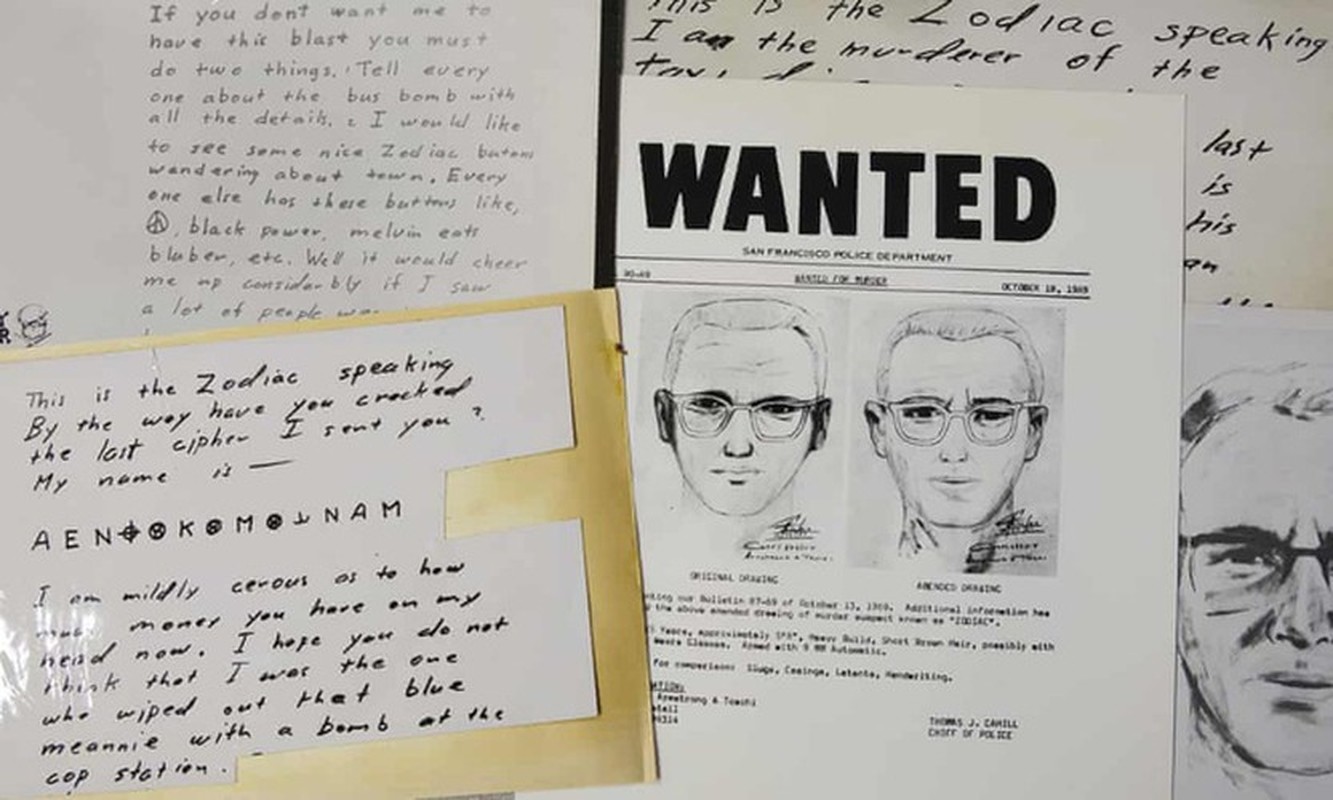 If you don't want me to
have this blast you must
do two things. Tell every
one about the bus bomb with
all the details. I would like
to see some nice Zodiac butons
wandering about town. Every
one else has these buttons like,
, black power, melvin eats
bluber, etc. Well it would cheer
me up considerbly if I saw
a lot of people
This is the Zodiac speaking
By the way have you cracked
the last cipher I sent you ?
My name is —
A E N ⌖ ⊗ K ⊗ M ⊗ ⅃ N A M
I am mildly cerous as to how
much money you have on my
head now. I hope you do not
think that I was the one
who wiped out that blue
meannie with a bomb at the
cop station.
This is the Zodiac speaking
I am the murderer of the
last
is
his
an
WANTED
SAN FRANCISCO POLICE DEPARTMENT
90-69 WANTED FOR MURDER OCTOBER 18, 1969
ORIGINAL DRAWING AMENDED DRAWING
our Bulletin 87-69 of October 13, 1969. Additional information has
the above amended drawing of murder suspect known as "ZODIAC".
Years, Approximately 5'8", Heavy Build, Short Brown Hair, possibly with
Wears Glasses. Armed with 9 MM Automatic.
for comparison: Slugs, Casings, Latents, Handwriting.
Armstrong & Toschi
THOMAS J. CAHILL
CHIEF OF POLICE